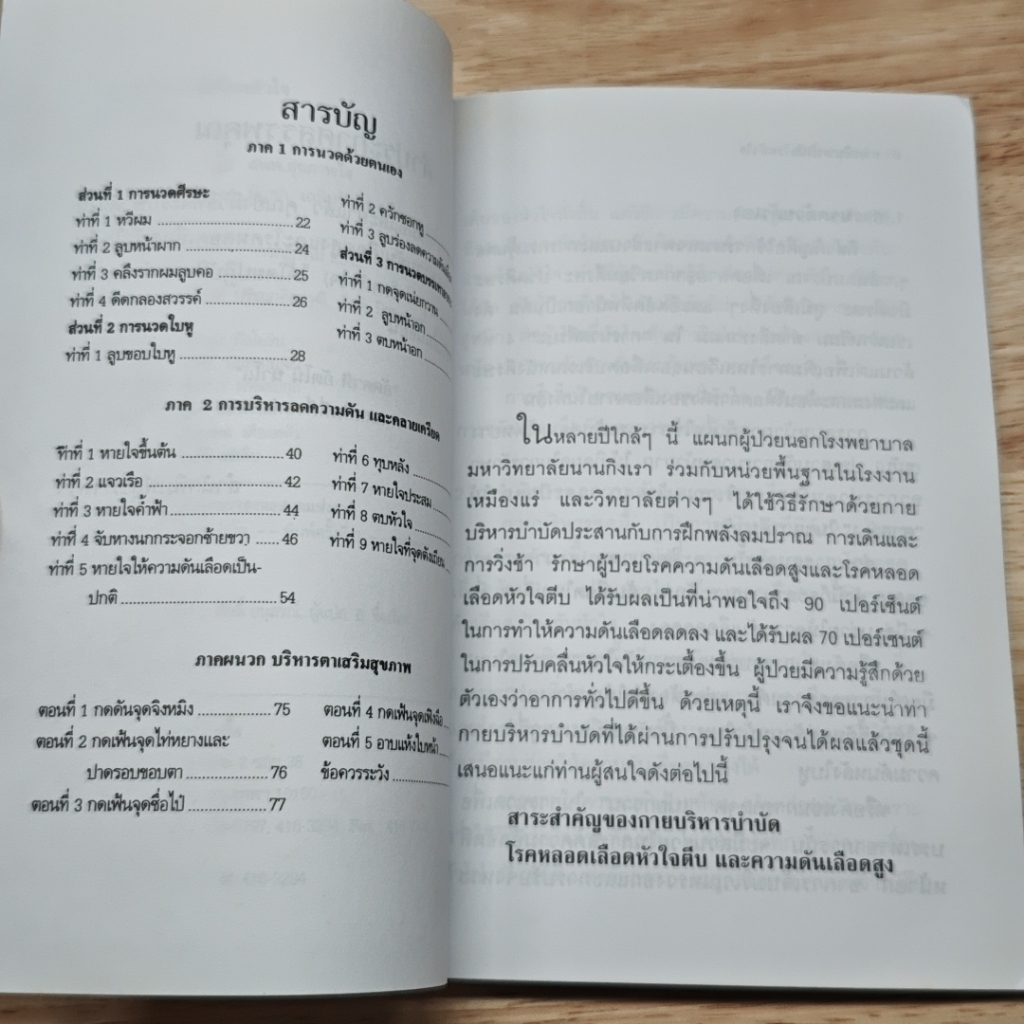 สารบัญ
ภาค 1 การนวดด้วยตนเอง
ส่วนที่ 1 การนวดศีรษะ
ท่าที่ 1 หวีผม 22
ท่าที่ 2 ลูบหน้าผาก 24
ท่าที่ 3 คลึงรากผมลูบคอ 25
ท่าที่ 4 ดีดกลองสวรรค์ 26
ส่วนที่ 2 การนวดใบหู
ท่าที่ 1 ลูบขอบใบหู 28
ท่าที่ 2 ควักซอกหู
ท่าที่ 3 ลูบร่องลดความดัน
ส่วนที่ 3 การนวด
ท่าที่ 1 กดจุดเน่ยกวาน
ท่าที่ 2 ลูบหน้าอก
ท่าที่ 3 ตบหน้าอก
ภาค 2 การบริหารลดความดัน และคลายเครียด
ท่าที่ 1 หายใจขึ้นต้น 40
ท่าที่ 2 แจวเรือ 42
ท่าที่ 3 หายใจค้ำฟ้า 44
ท่าที่ 4 จับหางนกกระจอกซ้ายขวา 46
ท่าที่ 5 หายใจให้ความดันเลือดเป็น-
ปกติ 54
ท่าที่ 6 ทุบหลัง
ท่าที่ 7 หายใจประสม
ท่าที่ 8 ตบหัวใจ
ท่าที่ 9 หายใจที่จุดตังเถียน
ภาคผนวก บริหารตาเสริมสุขภาพ
ตอนที่ 1 กดดันจุดจิงหมิง 75
ตอนที่ 2 กดเฟ้นจุดไท่หยางและ
ปาดรอบขอบตา 76
ตอนที่ 3 กดเฟ้นจุดซื่อไป๋ 77
ตอนที่ 4 กดเฟ้นจุดเฟิงฉือ
ตอนที่ 5 อาบแห้งใบหน้า
ข้อควรระวัง
ในหลายปีใกล้ๆ นี้ แผนกผู้ป่วยนอกโรงพยาบาล
มหาวิทยาลัยนานกิงเรา ร่วมกับหน่วยพื้นฐานในโรงงาน
เหมืองแร่ และวิทยาลัยต่างๆ ได้ใช้วิธีรักษาด้วยกาย
บริหารบำบัดประสานกับการฝึกพลังลมปราณ การเดินและ
การวิ่งช้า รักษาผู้ป่วยโรคความดันเลือดสูงและโรคหลอด
เลือดหัวใจตีบ ได้รับผลเป็นที่น่าพอใจถึง 90 เปอร์เซ็นต์
ในการทำให้ความดันเลือดลดลง และได้รับผล 70 เปอร์เซนต์
ในการปรับคลื่นหัวใจให้กระเตื้องขึ้น ผู้ป่วยมีความรู้สึกด้วย
ตัวเองว่าอาการทั่วไปดีขึ้น ด้วยเหตุนี้ เราจึงขอแนะนำท่า
กายบริหารบำบัดที่ได้ผ่านการปรับปรุงจนได้ผลแล้วชุดนี้
เสนอแนะแก่ท่านผู้สนใจดังต่อไปนี้
สาระสำคัญของกายบริหารบำบัด
โรคหลอดเลือดหัวใจตีบ และความดันเลือดสูง